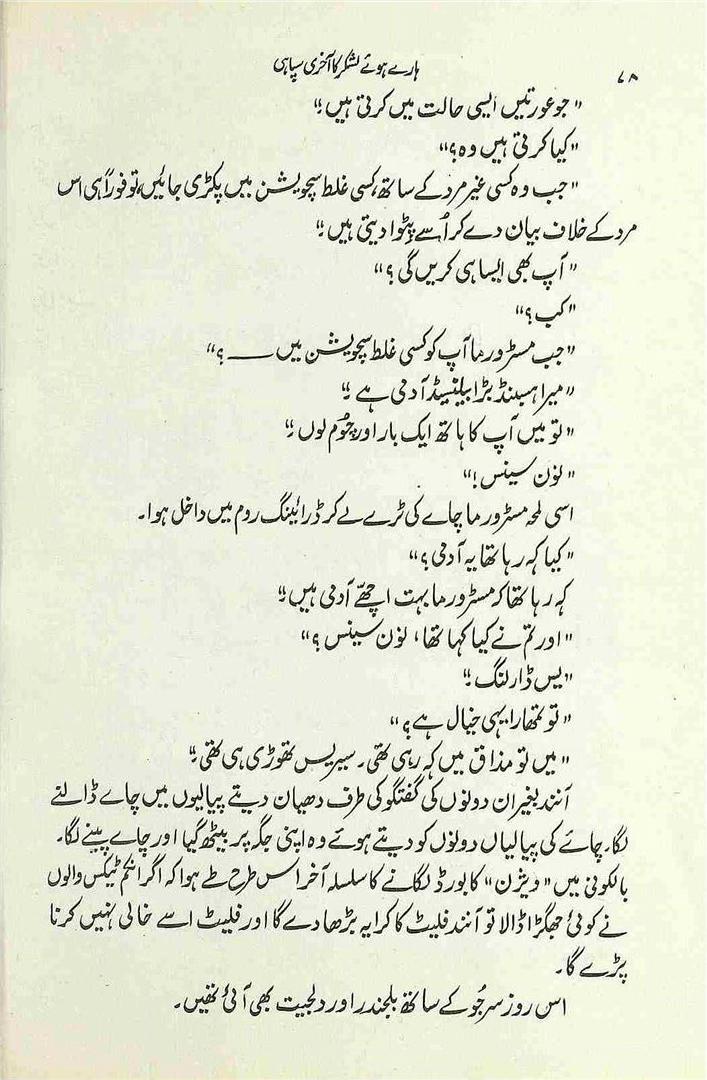 ۷۸
ہارے ہوئے لشکر کا آخری سپاہی
"جو عورتیں ایسی حالت میں کرتی ہیں۔"
"کیا کرتی ہیں وہ؟"
"جب وہ کسی غیر مرد کے ساتھ، کسی غلط سچویشن میں پکڑی جائیں، تو فوراً ہی اس
مرد کے خلاف بیان دے کر اُسے پِٹوا دیتی ہیں۔"
"آپ بھی ایسا ہی کریں گی؟"
"کب؟"
"جب مسٹر ورما آپ کو کسی غلط سچویشن میں ــــــ ؟"
"میرا ہسبینڈ بڑا بیلنسیڈ آدمی ہے۔"
"تو میں آپ کا ہاتھ ایک بار اور چُوم لوں۔"
"نون سینس!"
اسی لمحہ مسٹر ورما چاے کی ٹرے لے کر ڈرائینگ روم میں داخل ہوا۔
"کیا کہہ رہا تھا یہ آدمی؟"
کہہ رہا تھا کہ مسٹر ورما بہت اچھّے آدمی ہیں۔"
"اور تم نے کیا کہا تھا، نون سینس؟"
"یس ڈارلنگ۔"
"تو تمھارا یہی خیال ہے؟"
"میں تو مذاق میں کہہ رہی تھی۔ سیریس تھوڑی ہی تھی۔"
آنند بغیر ان دونوں کی گفتگو کی طرف دھیان دیتے پیالیوں میں چاے ڈالنے
لگا۔ چائے کی پیالیاں دونوں کو دیتے ہوئے وہ اپنی جگہ پر بیٹھ گیا اور چاے پینے لگا۔
بالکونی میں "ویژن" کا بورڈ لگانے کا سلسلہ آخر اس طرح طے ہوا کہ اگر انکم ٹیکس والوں
نے کوئی جھگڑا ڈالا تو آنند فلیٹ کا کرایہ بڑھا دے گا اور فلیٹ اسے خالی نہیں کرنا
پڑے گا۔
اس روز سرجُو کے ساتھ بلجندر اور دلجیت بھی آئی تھیں۔